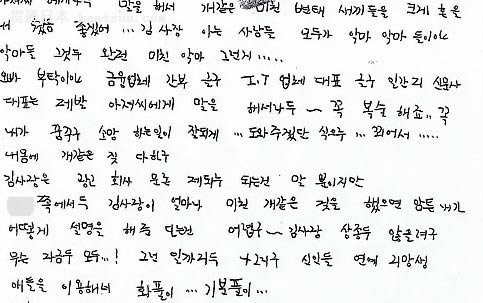 말을 해서 개같은 미친 변태 새끼들을 크게 혼을
서 좋겠어 ... 김사장 아는 사람들 모두가 악마 악마 들이야
악마들 그것두 완전 미친 악마 그런거.....
오빠 부탁이야 금융업체 간부 하구 I.T 업체 대표 하구 일간지 신문사
대표는 제발 아저씨에게 말을 해서라두 ~ 꼭 복수 해죠.. 꼭
내가 꿈꾸구 소망 하는일이 잘되게 ... 도와주겠단 식으루 ... 꾀어서 .....
내몸에 개같은 짓 다하구
김사장은 광고 회사 모는 제되누 되는건 말 뿐이지만
쪽에서두 김사장이 얼마나 미친 개같은 것을 했으면 암튼 내가
어떻게 설명을 해 주 어렵구 ~ 김사장 상종두 않을려구
자금두 모두...! 그넘 일까리두 신인들 연예 지망생
애들을 이용해서 화풀이 ... 기분풀이 ...